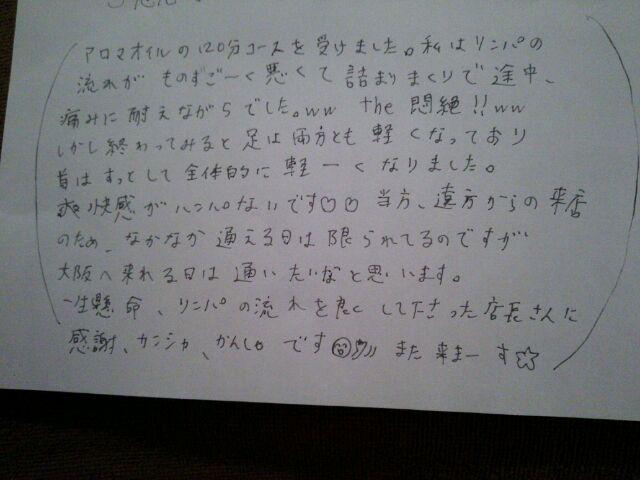 アロマオイルの120分コースを受けました。私はリンパの
流れが ものすご〜く悪くて 詰まりまくりで途中、
痛みに耐えながらでした。ww the 悶絶!!ww
しかし終わってみると足は両方とも 軽くなっており
首はすっとして全体的に軽ーくなりました。
爽快感がハンパないです♡♡ 当方、遠方からの来店
のため、なかなか通える日は限られてるのですが
大阪へ来れる日は通いたいなと思います。
一生懸命、リンパの流れを良くして下さった店長さんに
感謝、カンシャ、かんしゃ です また来まーす☆